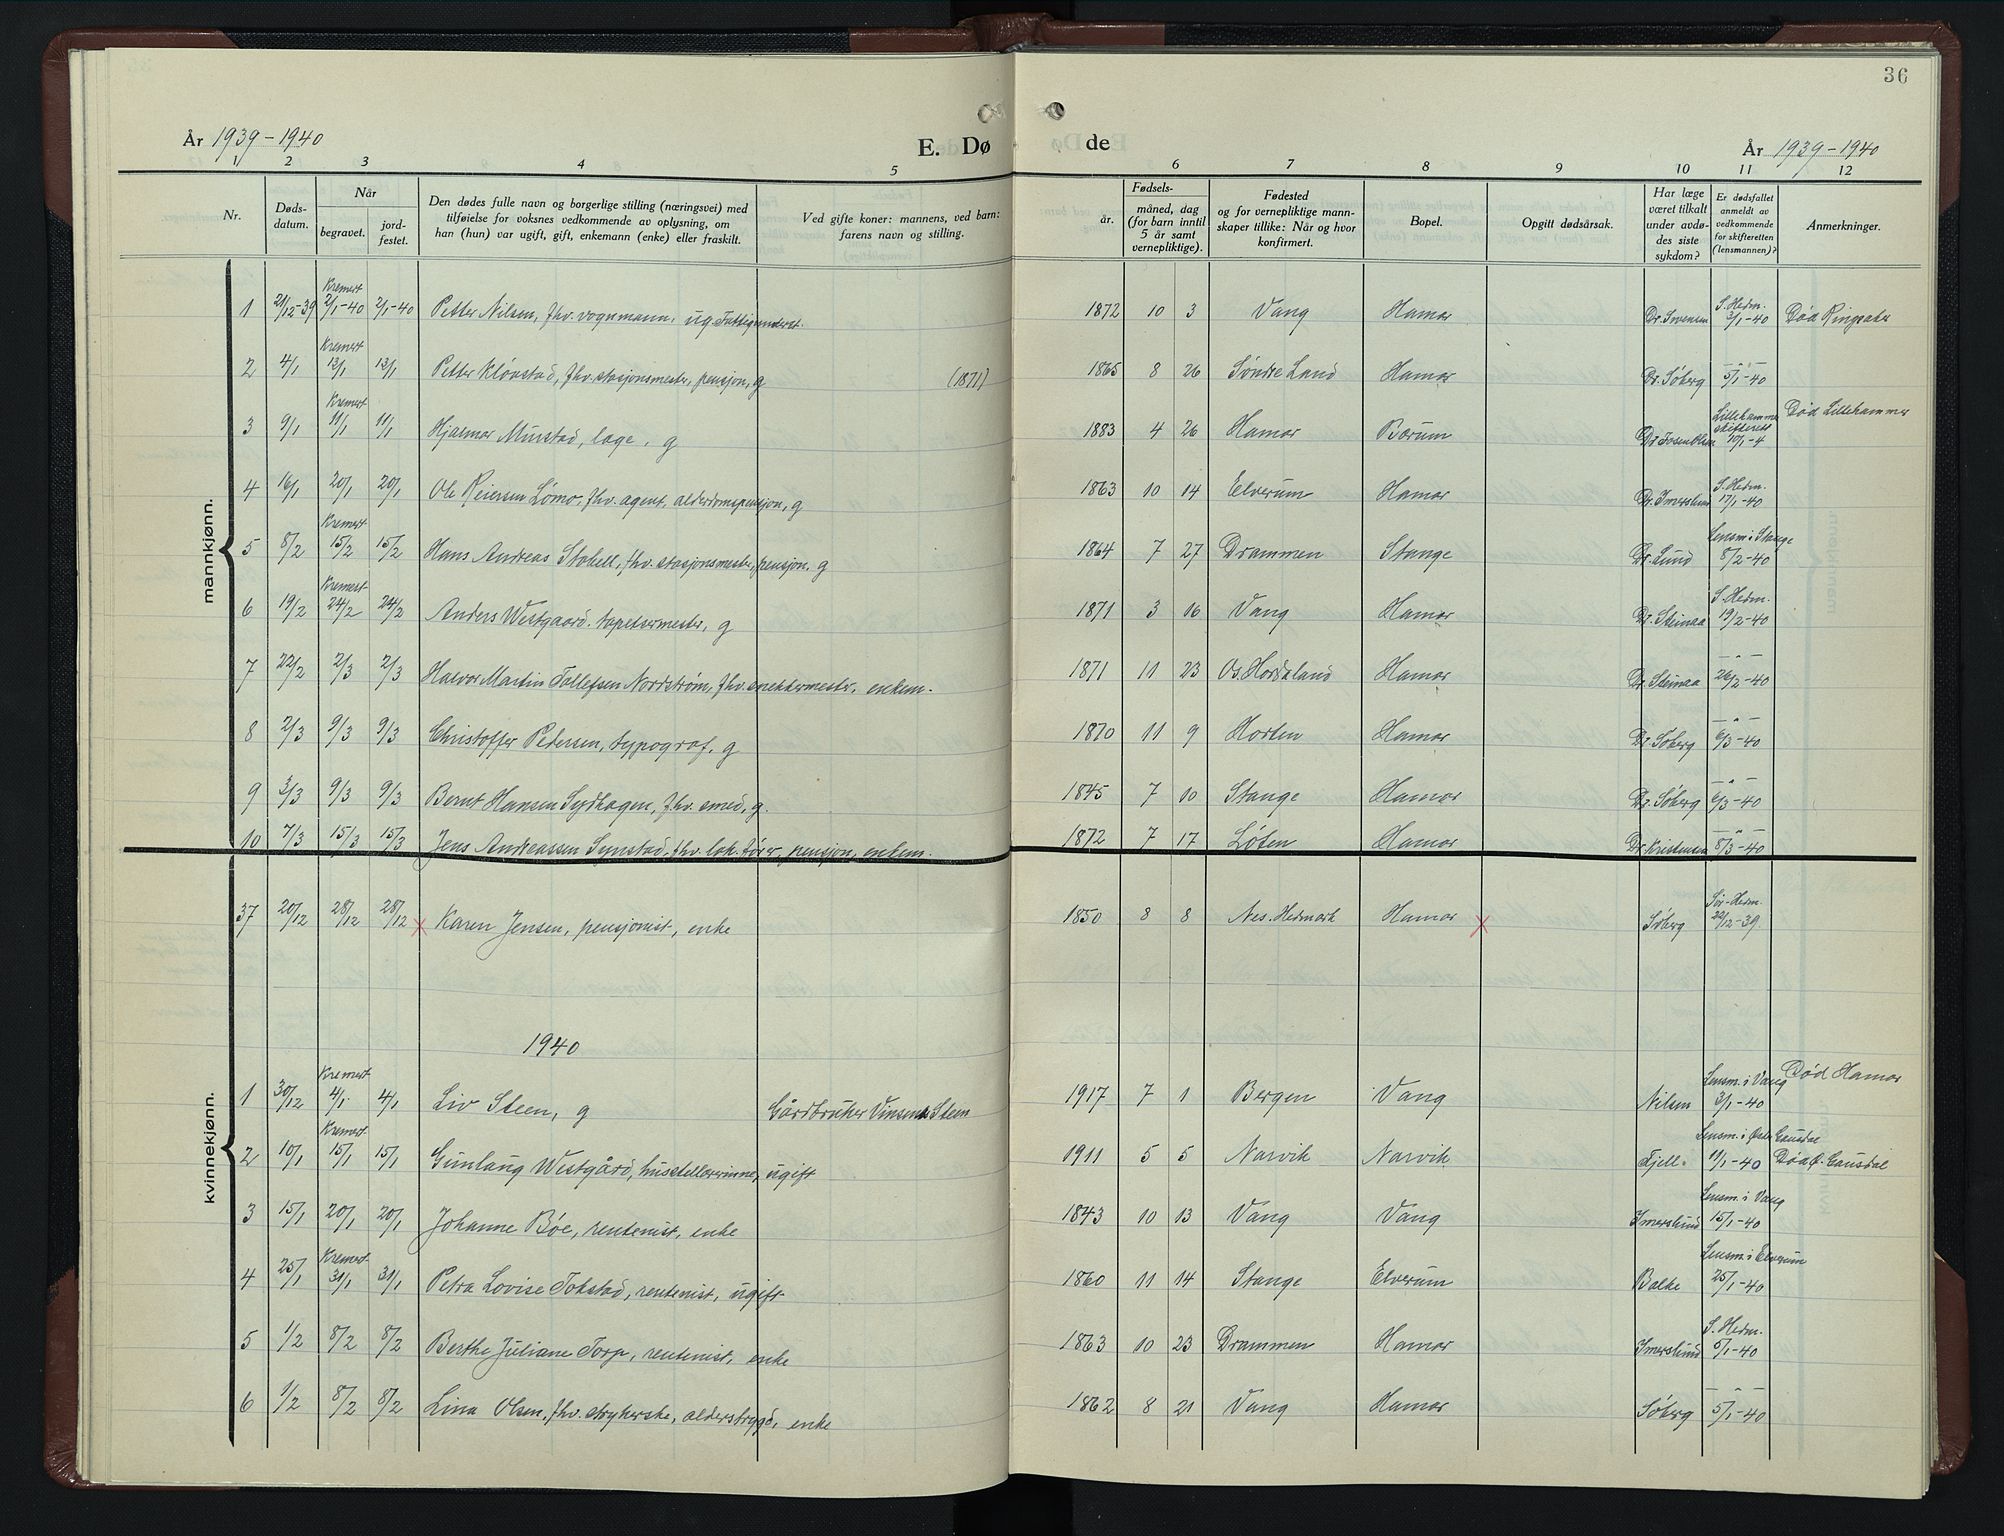 36
År 1939-1940
E. Dø de
År 1939-1940
1 2 3 4 5 6 7 8 9 10 11 12
Nr.
Døds-
datum.
Når
begravet.
jord-
festet.
Den dødes fulle navn og borgerlige stilling (næringsvei) med
tilføielse for voksnes vedkommende av oplysning, om
han (hun) var ugift, gift, enkemann (enke) eller fraskilt.
Ved gifte koner: mannens, ved barn:
farens navn og stilling.
Fødsels-
år.
måned, dag
(for barn inntil
5 år samt
vernepliktige).
Fødested
og for vernepliktige mann-
skaper tillike: Når og hvor
konfirmert.
Bopel.
Opgitt dødsårsak.
Har læge
været tilkalt
under avdø-
des siste
sykdom?
Er dødsfallet
anmeldt av
vedkommende
for skifteretten
(lensmannen)?
Anmerkninger.
mannkjønn.
1 21/12-39 Kremert 2/1-40 2/1-40 Petter Nilsen, fhv. vognmann, ug Fattigunderst. 1872 10 3 Vang Hamar Dr. Svensen S. Hedm. 3/1-40 Død Ringsaker
2 4/1 Kremert 13/1 13/1 Petter Kløvstad, fhv. stasjonsmester, pensjon, g (1871) 1865 8 26 Søndre Land Hamar Dr. Søberg -"- 5/1-40
3 9/1 Kremert 11/1 11/1 Hjalmar Mustad, læge, g 1883 4 26 Hamar Bærum Lillehammer skifterett 10/1-4 Død Lillehammer
4 16/1 20/1 20/1 Ole Reiersen Lømo, fhv. agent, alderdomspensjon, g 1863 10 14 Elverum Hamar Dr. Imerslund S. Hedm. 17/1-40
5 8/2 Kremert 15/2 15/2 Hans Andreas Stabell, fhv. stasjonsmester, pensjon, g 1864 7 27 Drammen Stange Dr. Lund Lensm i Stange 8/2-40
6 19/2 Kremert 24/2 24/2 Anders Westgaard, tapetsermester, g 1871 3 16 Vang Hamar Dr. Steinaa S. Hedm. 19/2-40
7 22/2 2/3 2/3 Halvor Martin Tollefsen Nordstrøm, fhv. snekkermester, enkem. 1871 11 23 Os. Hordaland Hamar Dr. Steinaa -"- 26/2-40
8 2/3 9/3 9/3 Christoffer Pedersen, typograf, g 1870 11 9 Horten Hamar Dr. Søberg -"- 6/3-40
9 3/3 9/3 9/3 Bernt Hansen Sydhagen, fhv. smed, g. 1845 7 10 Stange Hamar Dr. Søberg -"- 6/3-40
10 7/3 15/3 15/3 Jens Andreassen Synstad, fhv. lok. fører, pensjon, enkem. 1872 7 17 Løten Hamar Dr. Kristensen -"- 8/3-40
kvinnekjønn.
37 20/12 28/12 28/12 x Karen Jensen, pensjonist, enke 1850 8 8 Nes. Hedmark Hamar x Søberg Sør-Hedm. 22/12-39
1940
1 30/12 Kremert 4/1 4/1 Liv Steen, g Gårdbruker Vinsens Steen 1917 7 1 Bergen Vang Nilsen Lensm. i Vang 3/1-40 Død Hamar
2 10/1 Kremert 15/1 15/1 Gunlaug Westgård, husstellærerinne, ugift 1911 5 5 Narvik Narvik Fjell. Lensm. i Østre Gausdal 11/1-40 Død Ø. Gausdal
3 15/1 20/1 20/1 Johanne Bøe, rentenist, enke 1843 10 13 Vang Vang Imerslund Lensm. i Vang 15/1-40
4 25/1 Kremert 31/1 31/1 Petra Lovise Tokstad, rentenist, ugift 1860 11 14 Stange Elverum Balke Lensm. i Elverum 25/1-40
5 1/2 8/2 8/2 Berthe Juliane Torp, rentenist, enke 1863 10 23 Drammen Hamar Imerslund S. Hedm. 5/1-40
6 1/2 8/2 8/2 Lina Olsen, fhv. strykerske, alderstrygd, enke 1862 8 21 Vang Hamar Søberg -"- 5/1-40